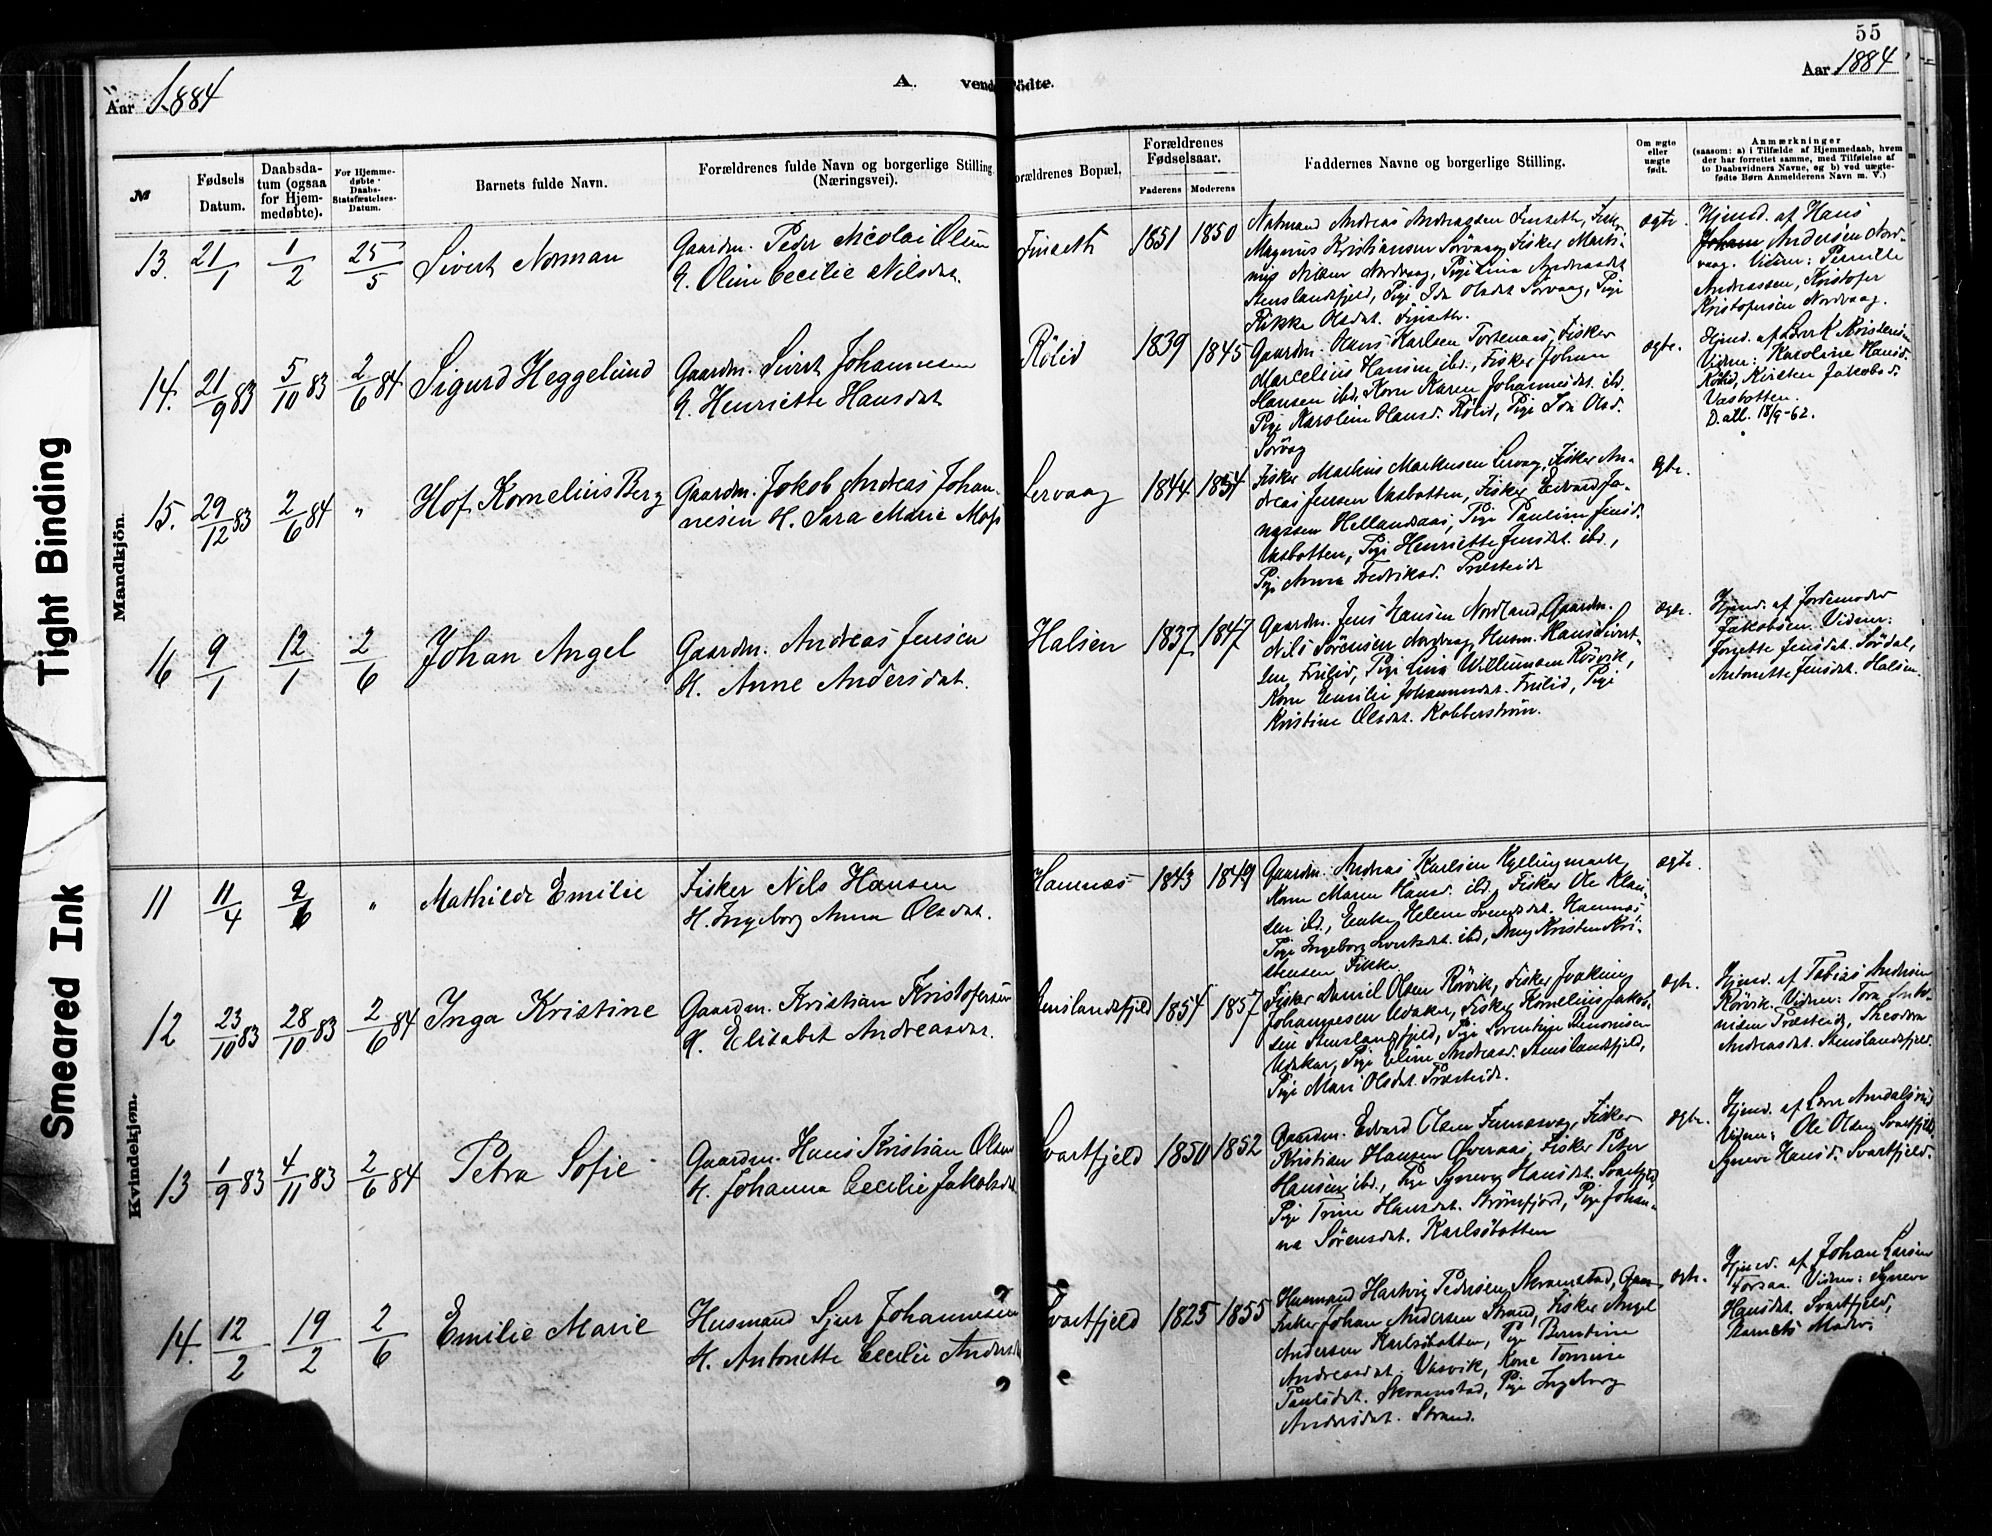 55
Aar 1884
A.
vend
ödte.
Aar 1884
M
Fødsels Datum.
Daabsda-
tum (ogsaa
for Hjem-
medøbte).
For Hjemme-
døbte
Daabs-
Statsfæstelses-
Datum.
Barnets fulde Navn.
Forældrenes fulde Navn og borgerlige Stilling
(Næringsvei).
orældrenes Bopæl.
Forældrenes
Fødselsaar.
Faderens
Moderens
Faddernes Navne og borgerlige Stilling.
Om ægte
eller
uægte
født.
Anmærkninger
(saasom: a) i Tilfælde af Hjemmedaab, hvem
der har forrettet samme, med Tilføielse af
to Daabsvidners Navne, og b) ved uægte-
fødte Børn Anmelderens Navn m. V.)
Mandkjön.
13. 21/1 1/2 25/5 Sivert Norman
Gaardm. Peder Nicolai Olsen
H. Oline Cecilie Nilsdat.
Finseth 1851 1850
Magnus Kristiansen Sørvaag, Fisker Marti-
Stenslandsfjeld, Pige Ida Olsdat Sørvaag, Pige
Rikke Olsdat. Finseth.
ægte.
Hjemd. af Hans
Johan Andersen Nord-
vaag. Vidner: Pernille
Andreassen, Kristofer
Kristofersen Nordvaag.
14. 21/9 83 5/10 83 2/6 84 Sigurd Heggelund
Gaardm. Sivert Johannesen
H. Henriette Hansdat
Rølid 1839 1845
Gaardm. Hans Karlsen Tortenaas, Fisker
Marcelius Hansen ibd., Fisker Johan
Hansen ibd, Kone Karen Johannesdat. ibd.
Pige Karoline Hansd. Rølid, Pige Ida Olsd.
Sørvag
ægte.
Vidner: Karoline Hansd.
Rølid, Kirsten Jakobsd.
Vasbotten.
D. att. 18/9-62.
15. 29/12 83 2/6 84 " Hof Kornelius Berg
Gaardm. Jakob Andreas Johan-
nesen H. Sara Marie Mos
Lervaag 1844 1854
Fisker Markus Markusen Lervag, Fisker An-
dreas Jensen Vasbotten, Fisker Edvard Jo-
Hellandsaas, Pige Pauline Jensd.
Vasbotten, Pige Henriette Jensdat. ibd.,
Pige Anna Fredriksd. Præsteide
ægte.
16 9/1 12/1 2/6 Johan Angel
Gaardm. Andreas Jensen
H. Anne Andersdat.
Halsen 1837 1847
Gaardm. Jens Hansen Nordland, Gaardm.
Nils Sørensen Nordvaag, Husm. Hans Sivert-
sen Friilid, Pige Lina Willumsen Rösvik,
Kone Emilie Johannesdat. Friilid, Pige
Kristine Olsdat. Kobberstrøm.
ægte.
Hjemd. af Jordemoder
Jakobsen. Vidner:
Jorgette Jensdat. Sördal,
Antonette Jensdat. Halsen.
Kvindekjøn.
11 11/4 2/6 " Mathilde Emilie
Fisker Nils Hansen
H. Ingeborg Anna Olsdat.
Hamnæs 1843 1849
Gaardm. Andreas Karlsen Kyllingmark,
Kone Maren Hansd. ibd. Fisker Ole Klau-
sen ibd., Enke Helene Svensdat. Hamnæs,
Pige Ingeborg Sivertsdat. ibd, Ung Kristen Kri-
stensen Fikke
ægte.
12 23/10 83 28/10 83 2/6 84 Inga Kristine
Gaardm. Kristian Kristofersen
H. Elisabet Andreasdat.
enslandsfjeld 1854 1857
Fisker Daniel Olsen Rörvik, Fisker Joakim
Johannesen Udaker, Fisker Kornelius Jakob-
sen Stenslandsfjeld, Pige Lorentse Benonisen
Udaker, Pige Eline Andreasd. Stenslandsfjeld,
Pige Mari Olsdat. Præsteide.
ægte.
Hjemd. af Tobias Andersen
Rörvik. Vidner: Tora Anto-
nisen Præsteide, Theodora
Andreasdat. Stenslandsfjeld.
13 1/9 83 4/11 83 2/6 84 Petra Sofie
Gaardm. Hans Kristian Olsen
H. Johanna Cecilie Jakobsdat
Svartfjeld 1850 1852
Gaardm. Edvard Olsen Finnesvag, Fisker
Kristian Hansen Overaas, Fisker Peter
Hansen ibd., Pige Synnev Hansdat. Svartfjeld,
Pige Trine Hansdat. Strömfjord, Pige Johan-
na Sörensdat. Karlsöbotten
ægte.
Vidner: Ole Olsen Svartfjeld,
Synneve Hansd. Svartfjeld.
14. 12/2 19/2 2/6 Emilie Marie
Husmand Sjur Johannesen
H. Antonette Cecilie Anders
Svartfjeld 1825 1855
Husmand Hartvig Pedersen Skramstad, Gaar-
Fisker Johan Andersen Strand, Fisker Angel
Andersen Karlsöbotten, Pige Berntine
Andreasdat. Vasvik, Kone Tomine
Paulsdat. Skramstad, Pige Ingeborg
Andersdat. Strand.
ægte.
Hjemd. af Johan Larsen
Forsaa. Vidner: Synneve
Hansdat. Svartfjeld,
Barnets Moder.
Tight Binding
Smeared Ink